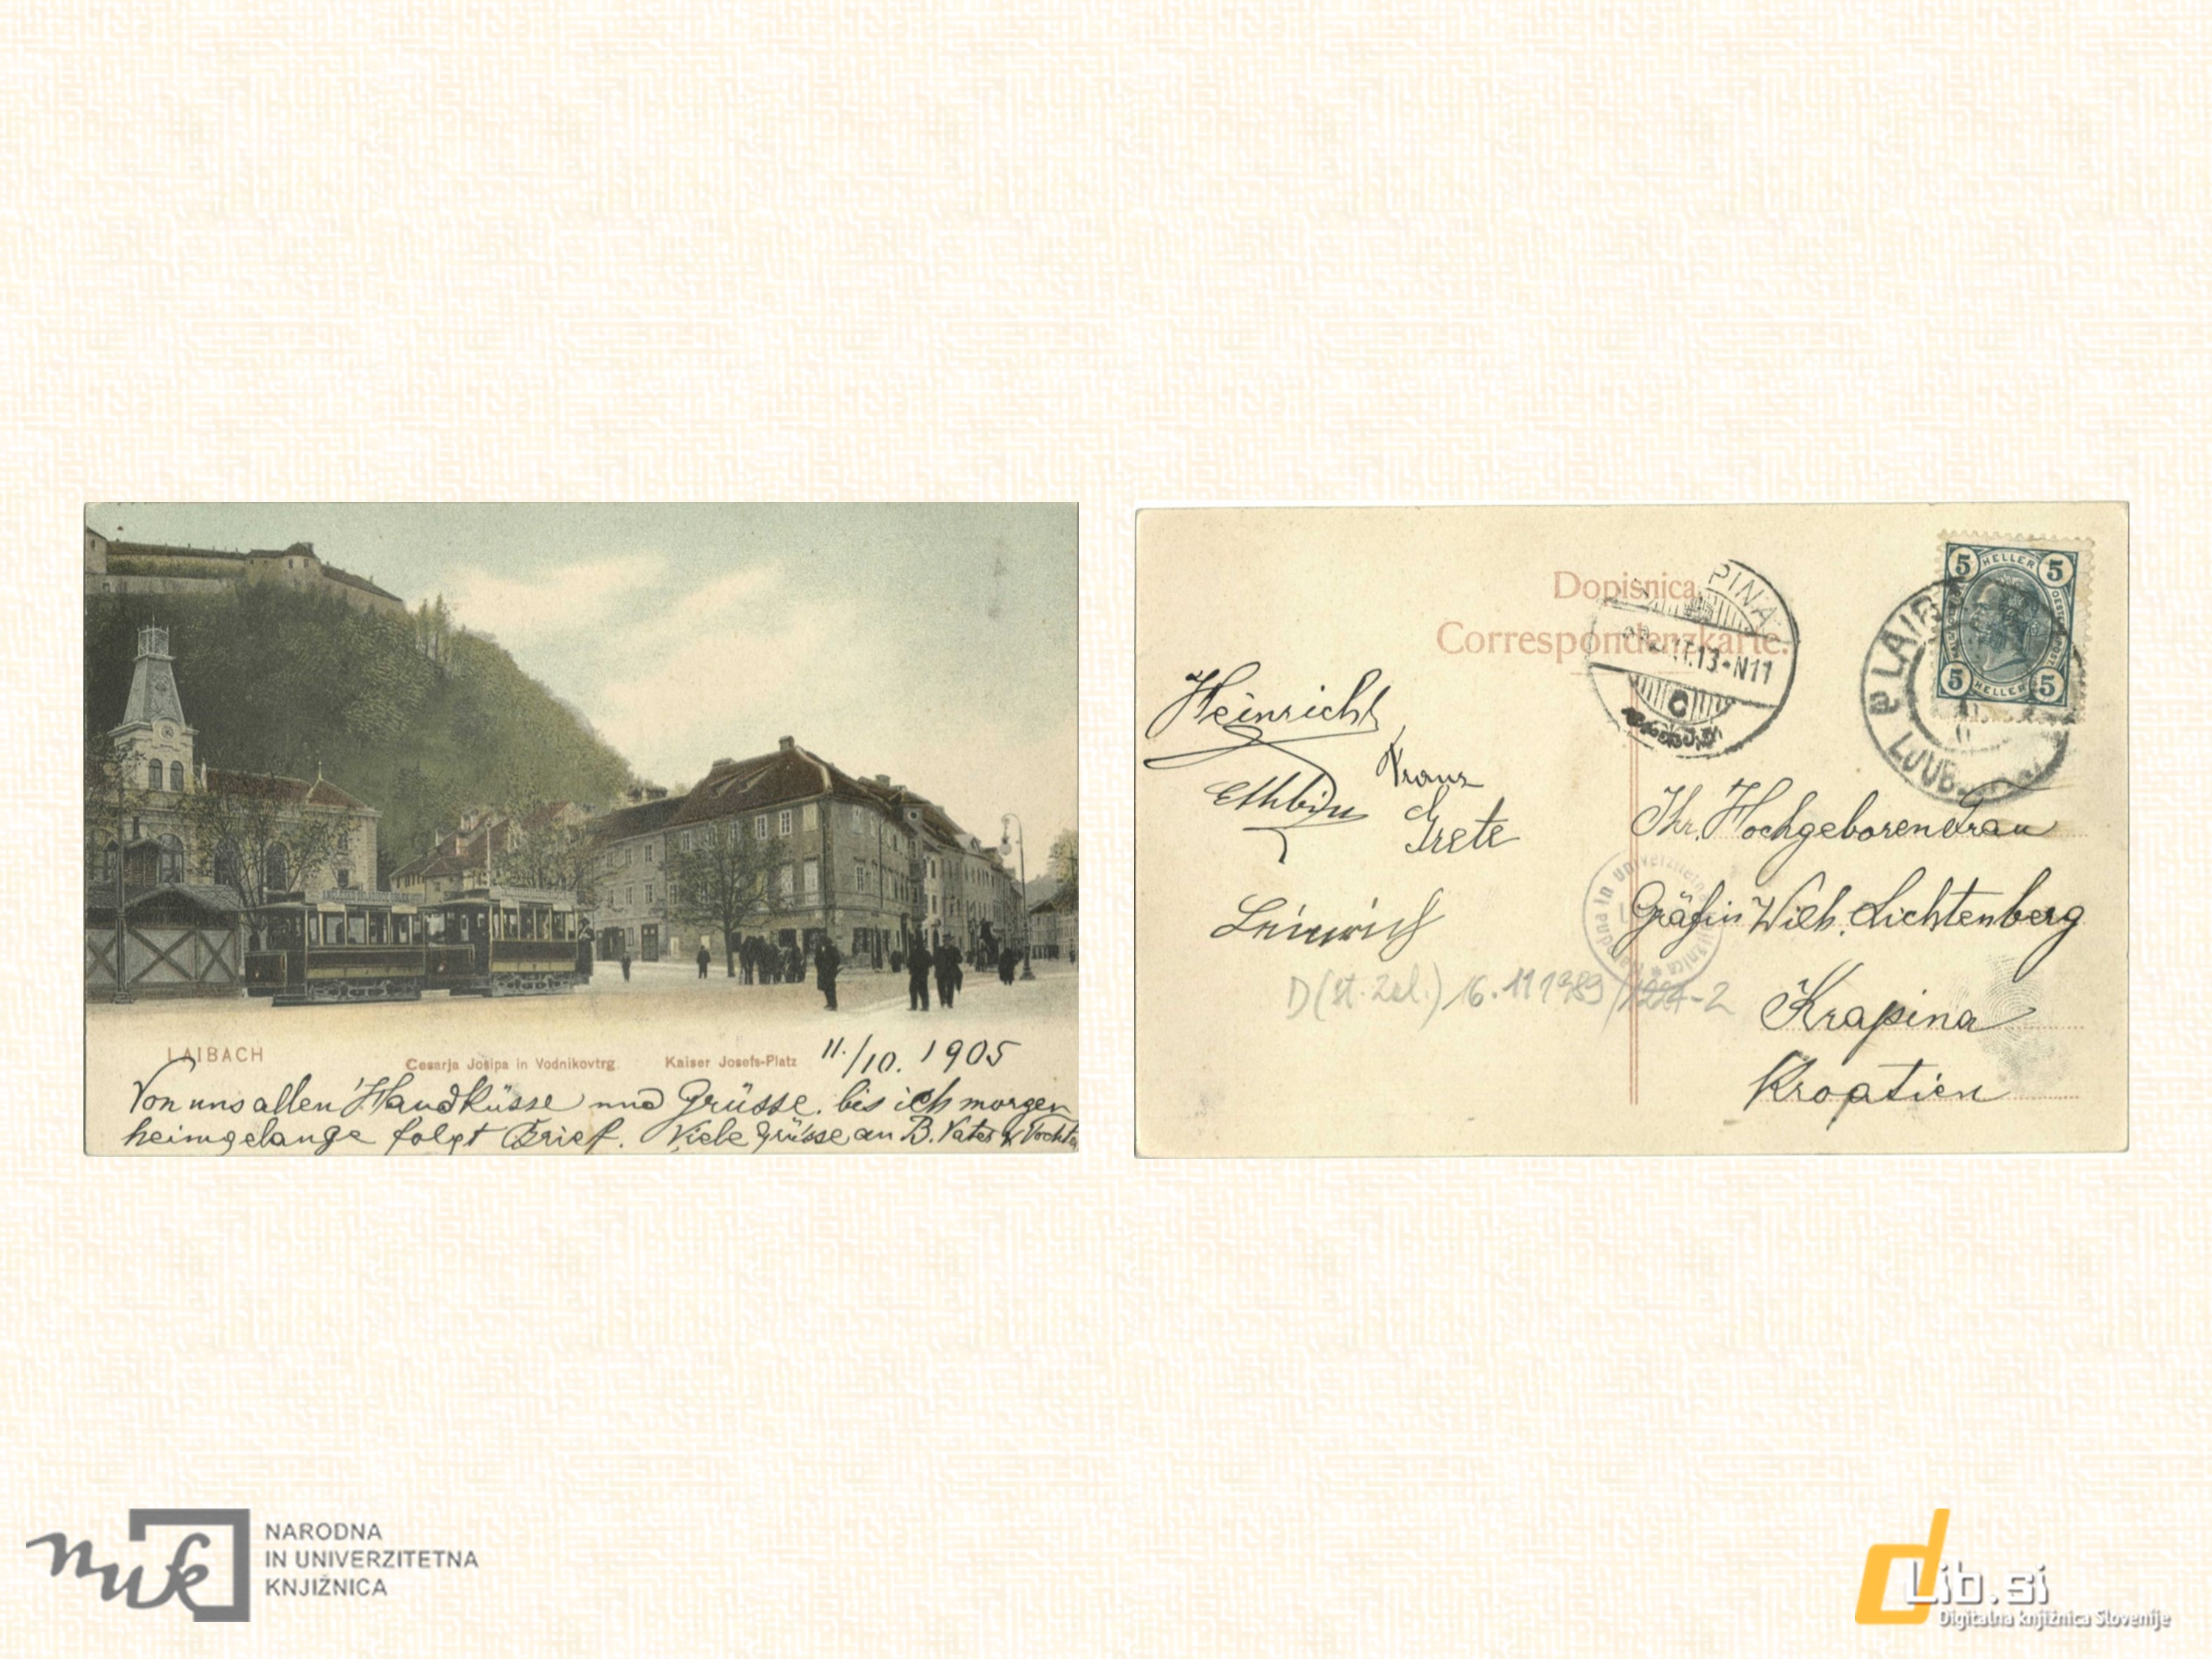 LAIBACH
Cesarja Josipa in Vodnikovtrg Kaiser Josefs-Platz 11./10. 1905
Von uns allen Handküsse und Grüsse. bis ich morgen
heimgelange folgt Brief. Viele Grüsse an B. Vater & Tochter
Dopisnica
Correspondenzkarte.
PINA
13-N11
C
5 HELLER 5
5 HELLER 5
LAIB
LJUB
Heinrich
Franz
Ethbin
Grete
Heinrich
Ihr. Hochgeboren Frau
Gräfin Wilh. Lichtenberg
Krapina
Kroatien
in univerzitetna
D (st. zal.) 16.11 1989
NARODNA
IN UNIVERZITETNA
KNJIŽNICA
nuk
dLib.si
Digitalna knjižnica Slovenije